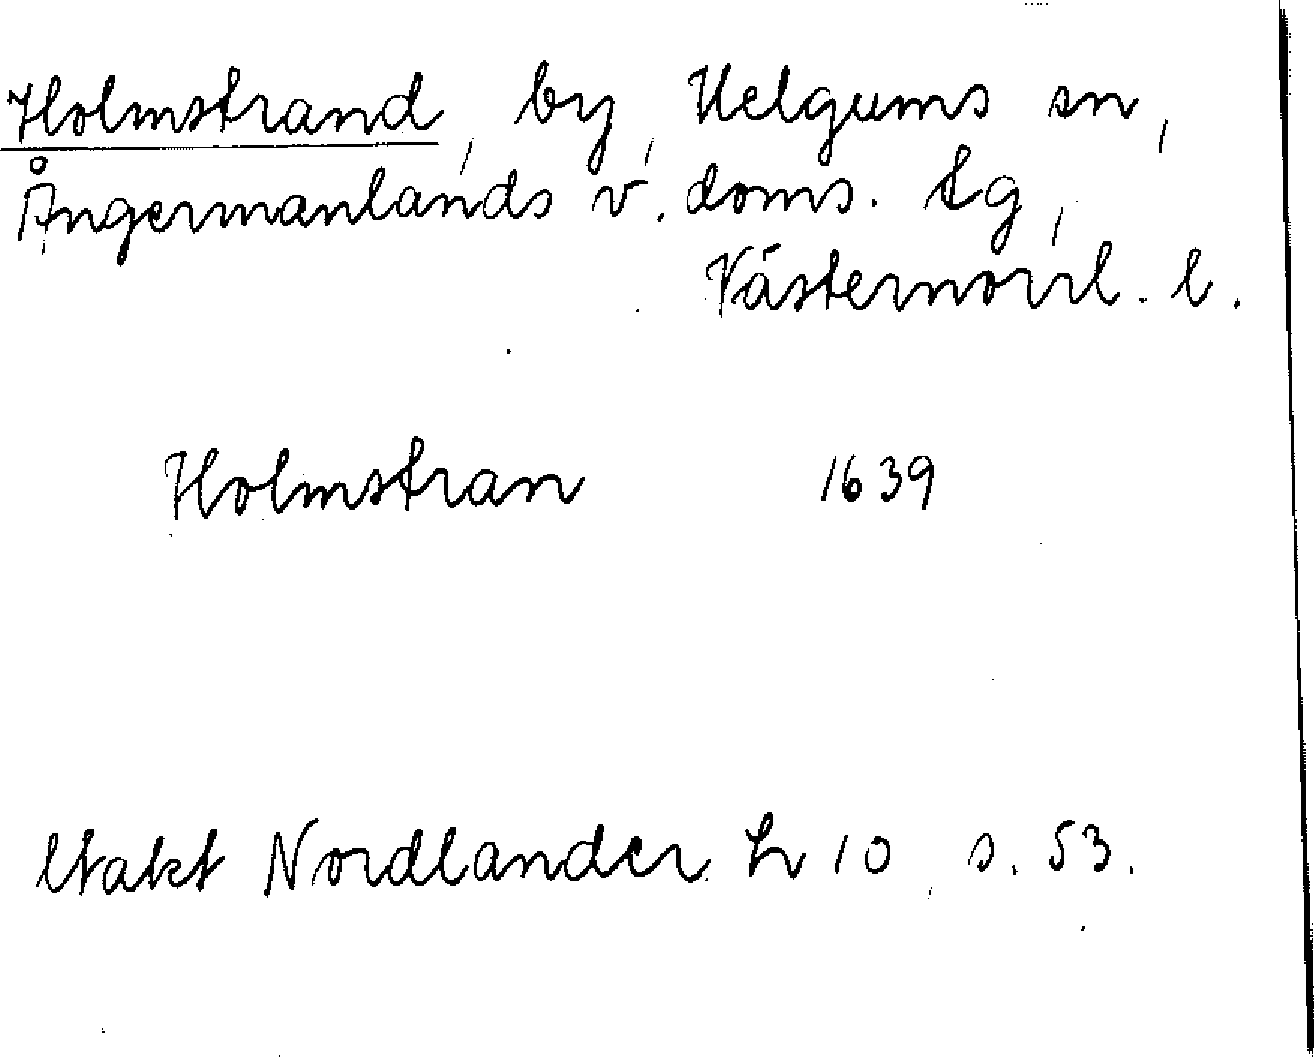 Holmstrand, by, Helgums sn,
Ångermanlands v. doms. tg,
Västernorrl. l.
Holmstran 1639
Nordlander h 10, s. 53.